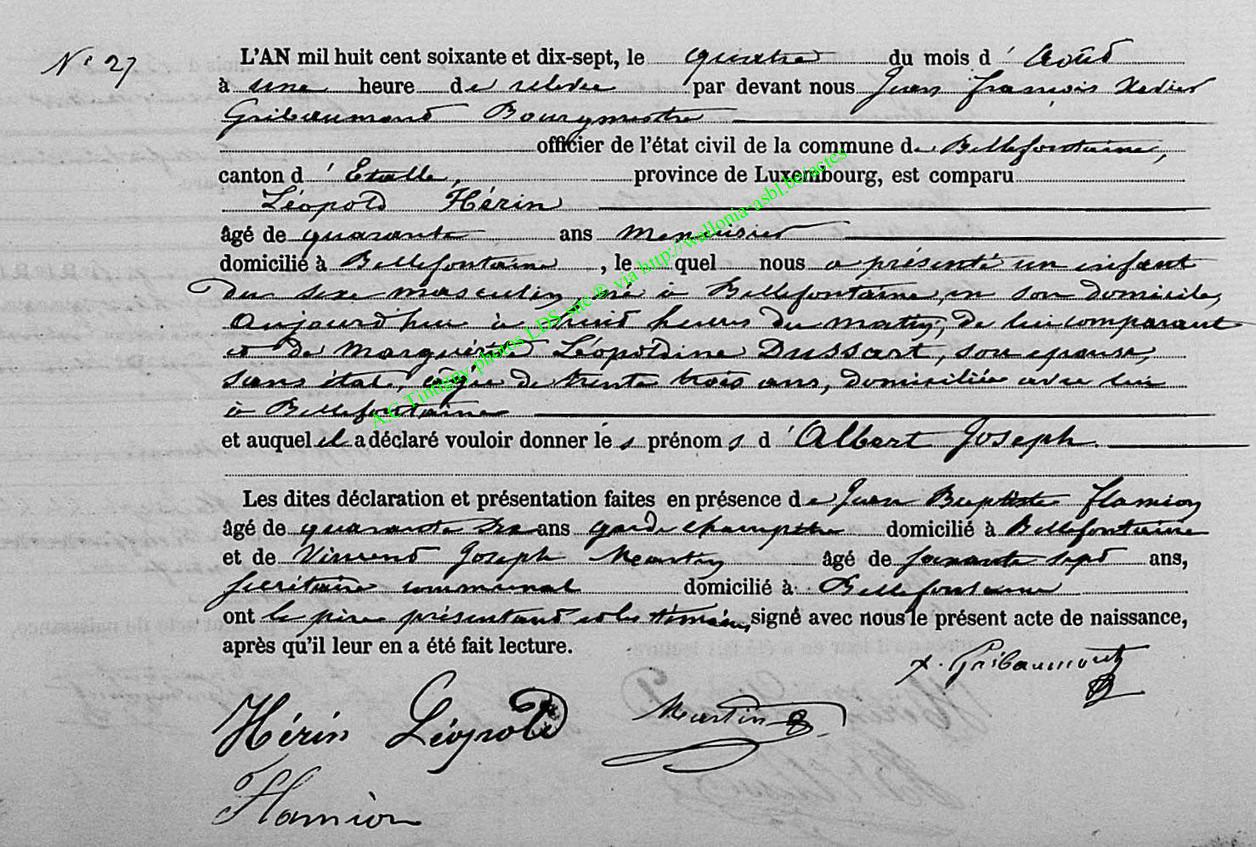 N° 27
L'AN mil huit cent soixante et dix-sept, le quatre du mois d' Août
à une heure de relevée par devant nous Jean François Xavier
Gribaumont Bourgmestre
officier de l'état civil de la commune de Bellefontaine,
canton d' Etalle, province de Luxembourg, est comparu
Léopold Hérin
âgé de quarante ans menuisier
domicilié à Bellefontaine, le quel nous a présenté un enfant
du sexe masculin, né à Bellefontaine, en son domicile,
Aujourd'hui à huit heures du matin, de lui comparant
et de Marguerite Léopoldine Dussart, son epouse,
sans état, agée de trente trois ans, domiciliée avec lui
à Bellefontaine
et auquel il a déclaré vouloir donner les prénoms d' Albert Joseph.
Les dites déclaration et présentation faites en présence de Jean Baptiste Flamion
âgé de quarante six ans garde champêtre domicilié à Bellefontaine
et de Vincent Joseph Martin âgé de sept ans,
secrétaire communal domicilié à Bellefontaine
ont le père présentant et les témoins, signé avec nous le présent acte de naissance,
après qu'il leur en a été fait lecture.
x. Gribaumont
Hérin Léopold Martin
Flamion
A.G Tintigny photos LDS site © via http://wallonia-asbl.be/actes